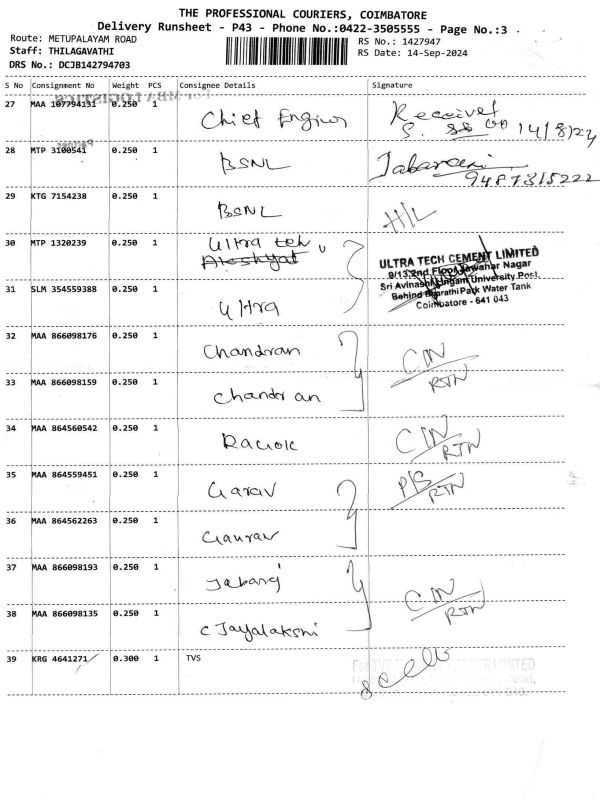 THE PROFESSIONAL COURIERS, COIMBATORE
Delivery Runsheet - P43 - Phone No.:0422-3505555 - Page No.:3
Route: METUPALAYAM ROAD
RS No.: 1427947
Staff: THILAGAVATHI
RS Date: 14-Sep-2024
DRS No.: DCJB142794703
S No Consignment No Weight PCS Consignee Details Signature
27 MAA 107794131 0.250 1 Chief Engineer Received
S. 14/8/24
28 MTP 3100541 0.250 1 BSNL
9487315222
29 KTG 7154238 0.250 1 BSNL H/L
30 MTP 1320239 0.250 1 Ultra teh
31 SLM 354559388 0.250 1 Ultra
ULTRA TECH CEMENT LIMITED
9/13,2nd Floor, Jawahar Nagar
Sri Avinashilingam University Post
Behind Bharathi Park Water Tank
Coimbatore - 641 043
32 MAA 866098176 0.250 1 Chandran C/N
RTN
33 MAA 866098159 0.250 1 Chandran
34 MAA 864560542 0.250 1 C/N
RTN
35 MAA 864559451 0.250 1 Garav P/S
RTN
36 MAA 864562263 0.250 1 Gaurav
37 MAA 866098193 0.250 1 C/N
RTN
38 MAA 866098135 0.250 1 C Jayalakshi
39 KRG 4641271 0.300 1 TVS